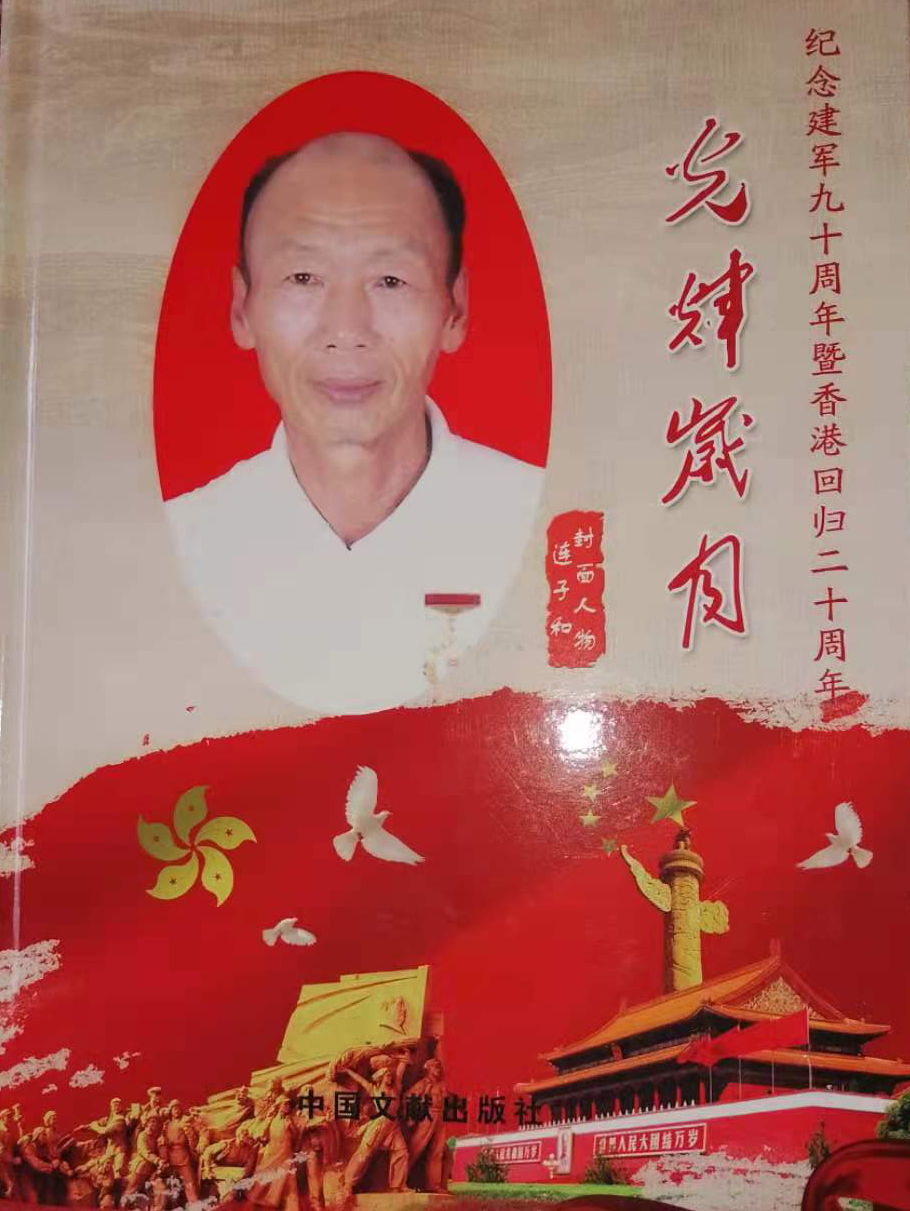 纪念建军九十周年暨香港回归二十周年
光辉岁月
封面人物
连子和
中国文献出版社
世界人民大团结万岁